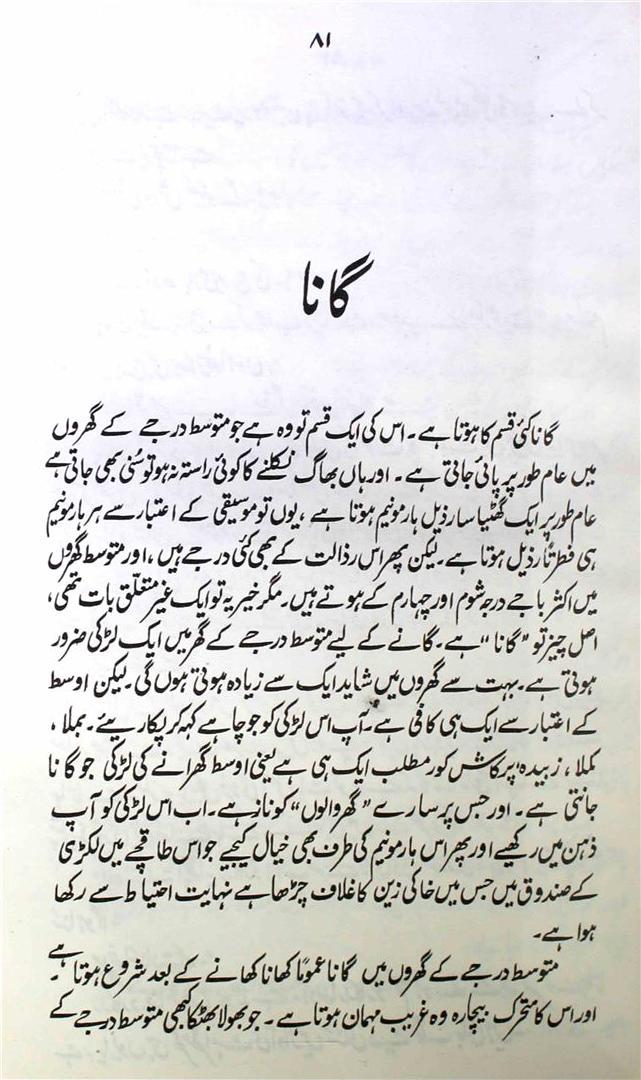 ۸۱
گانا
گانا کئی قسم کا ہوتا ہے۔ اس کی ایک قسم تو وہ ہے جو متوسط درجے کے گھروں
میں عام طور پر پائی جاتی ہے۔ اور ہاں بھاگ نکلنے کا کوئی راستہ نہ ہو تو سُنی بھی جاتی ہے
عام طور پر ایک گھٹیا سا رذیل ہارمونیم ہوتا ہے، یوں تو موسیقی کے اعتبار سے ہر ہارمونیم
ہی فطرتاً رذیل ہوتا ہے۔ لیکن پھر اس رذالت کے بھی کئی درجے ہیں، اور متوسط گھروں
میں اکثر باجے درجہ شوم اور چہارم کے ہوتے ہیں۔ مگر خیر یہ تو ایک غیر متعلق بات تھی،
اصل چیز تو ”گانا“ ہے۔ گانے کے لیے متوسط درجے کے گھر میں ایک لڑکی ضرور
ہوتی ہے۔ بہت سے گھروں میں شاید ایک سے زیادہ ہوتی ہوں گی۔ لیکن اوسط
کے اعتبار سے ایک ہی کافی ہے۔ آپ اس لڑکی کو جو چاہے کہہ کر پکاریئے۔ بملا،
کملا، زبیدہ، پرکاش کور مطلب ایک ہی ہے یعنی اوسط گھرانے کی لڑکی جو گانا
جانتی ہے۔ اور جس پر سارے ”گھر والوں“ کو ناز ہے۔ اب اس لڑکی کو آپ
ذہن میں رکھیے اور پھر اس ہارمونیم کی طرف بھی خیال کیجیے جو اس طاقچے میں لکڑی
کے صندوق میں جس میں خاکی زین کا غلاف چڑھا ہے نہایت احتیاط سے رکھا
ہوا ہے۔
متوسط درجے کے گھروں میں گانا عموماً کھانا کھانے کے بعد شروع ہوتا ہے۔
اور اس کا محرّک بیچارہ وہ غریب مہمان ہوتا ہے۔ جو بھولا بھٹکا کبھی متوسط درجے کے